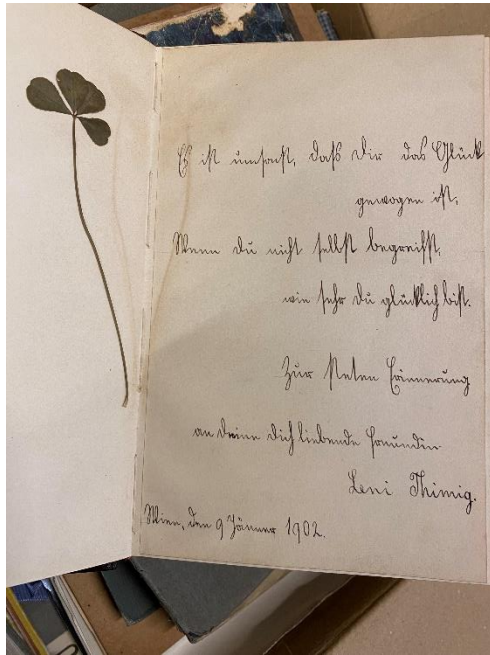 Es ist umsonst, daß Dir das Glück
gewogen ist,
Wenn Du nicht selbst begreifst,
wie sehr Du glücklich bist.
Zur steten Erinnerung
an Deine Dich liebende Freundin
Leni Thimig.
Wien, den 9 Jänner 1902.